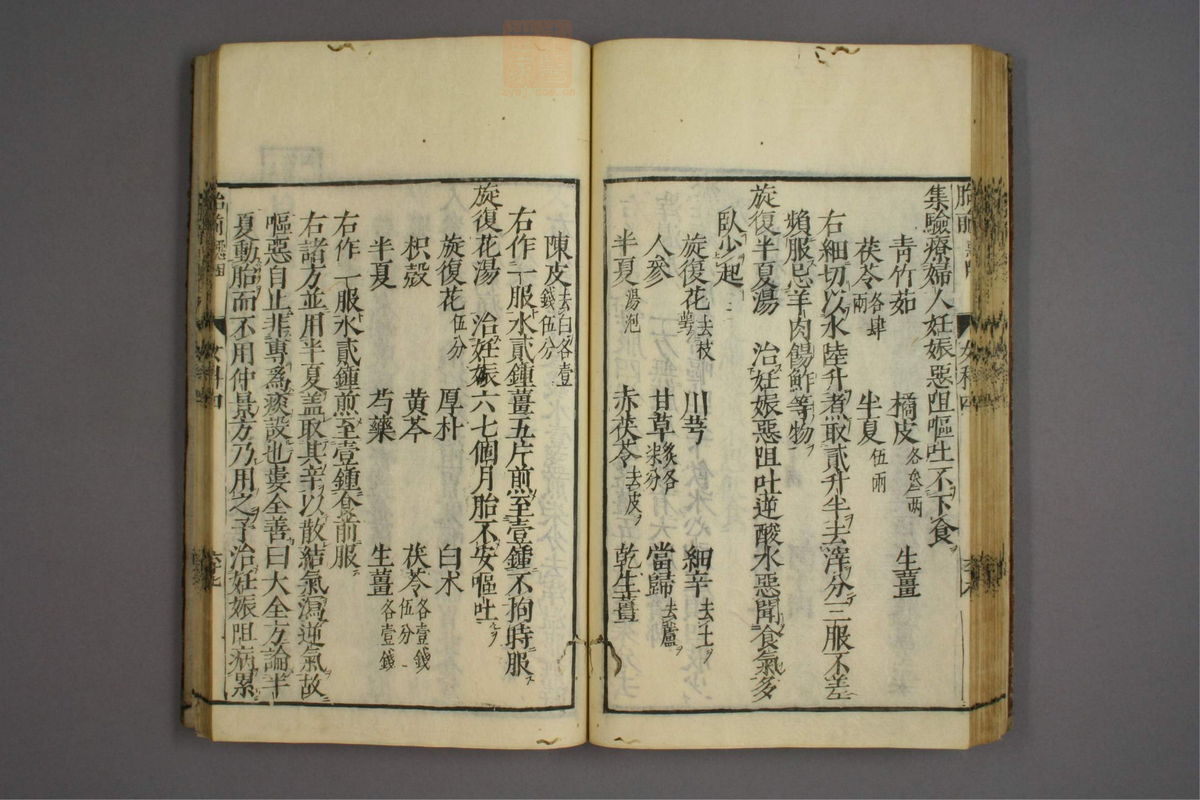 集驗療婦人妊娠惡阻嘔吐不下食
青竹茹 橘皮各叁兩 生薑
茯苓各肆兩 半夏伍兩
右細切以水陸升煮取貳升半去滓分三服不差
頻服忌羊肉餳鮓等物
旋復半夏湯 治妊娠惡阻吐逆酸水惡聞食氣多
臥少起
旋復花去枝萼 川芎 細辛去土
人參 甘草炙各柒分 當歸去蘆
半夏湯泡 赤茯苓去皮 乾生薑
陳皮去白各壹錢伍分
右作一服水貳鍾薑五片煎至壹鍾不拘時服
旋復花湯 治妊娠六七個月胎不安嘔吐
旋復花伍分 厚朴 白术
枳殼 黄芩 茯苓各壹錢伍分
半夏 芍藥 生薑各壹錢
右作一服水貳鍾煎至壹鍾食前服
右諸方並用半夏盖取其辛以散結氣瀉逆氣故
嘔惡自止非專爲痰設也婁全善曰大全方論半
夏動胎而不用仲景方乃用之予治妊娠阻病累